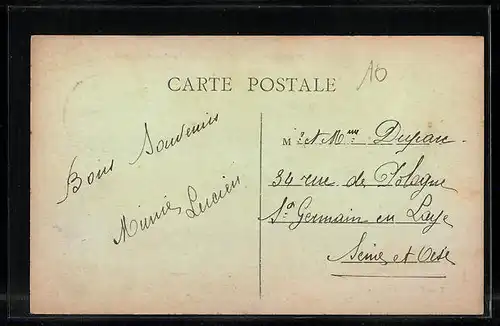 CARTE POSTALE
10
Bons Souvenirs
Mimie Lucien
M r et Mme Duparc
34 rue de Pologne
St Germain en Laye
Seine et Oise